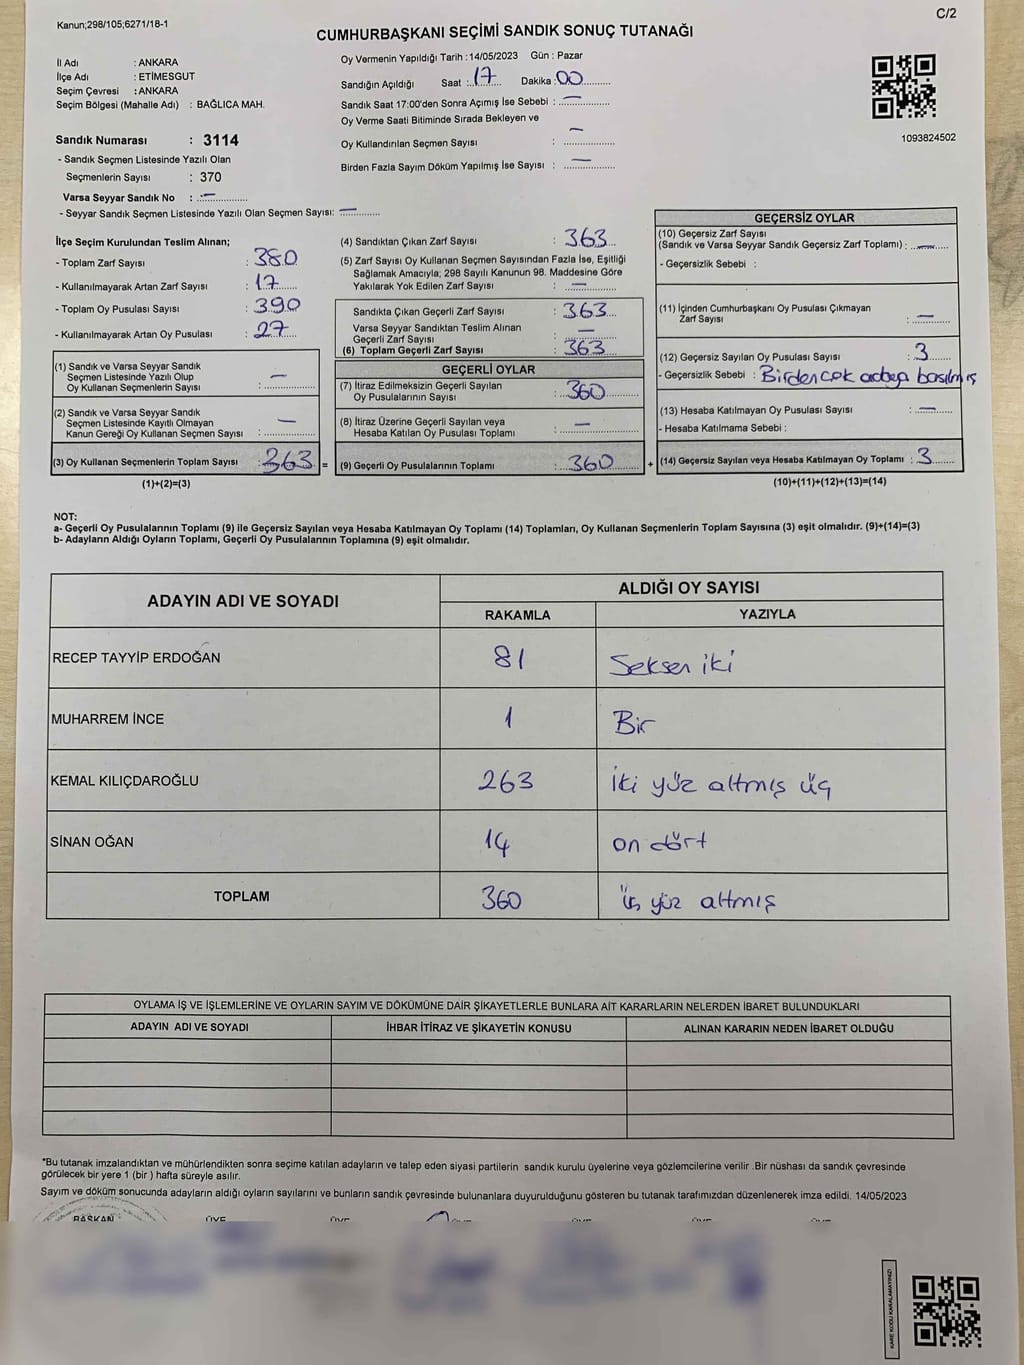 Kanun;298/105;6271/18-1
C/2
CUMHURBAŞKANI SEÇİMİ SANDIK SONUÇ TUTANAĞI
İl Adı : ANKARA
İlçe Adı : ETİMESGUT
Seçim Çevresi : ANKARA
Seçim Bölgesi (Mahalle Adı) : BAĞLICA MAH.
Sandık Numarası : 3114
- Sandık Seçmen Listesinde Yazılı Olan
Seçmenlerin Sayısı : 370
Varsa Seyyar Sandık No : —
- Seyyar Sandık Seçmen Listesinde Yazılı Olan Seçmen Sayısı: —
Oy Vermenin Yapıldığı Tarih :14/05/2023 Gün : Pazar
Sandığın Açıldığı Saat :17 Dakika :00
Sandık Saat 17:00'den Sonra Açımış İse Sebebi : —
Oy Verme Saati Bitiminde Sırada Bekleyen ve
Oy Kullandırılan Seçmen Sayısı : —
Birden Fazla Sayım Döküm Yapılmış İse Sayısı : —
1093824502
İlçe Seçim Kurulundan Teslim Alınan;
- Toplam Zarf Sayısı : 380
- Kullanılmayarak Artan Zarf Sayısı : 17
- Toplam Oy Pusulası Sayısı : 390
- Kullanılmayarak Artan Oy Pusulası : 27
(1) Sandık ve Varsa Seyyar Sandık
Seçmen Listesinde Yazılı Olup
Oy Kullanan Seçmenlerin Sayısı : —
(2) Sandık ve Varsa Seyyar Sandık
Seçmen Listesinde Kayıtlı Olmayan
Kanun Gereği Oy Kullanan Seçmen Sayısı : —
(3) Oy Kullanan Seçmenlerin Toplam Sayısı : 363 =
(1)+(2)=(3)
(4) Sandıktan Çıkan Zarf Sayısı : 363
(5) Zarf Sayısı Oy Kullanan Seçmen Sayısından Fazla İse, Eşitliği
Sağlamak Amacıyla; 298 Sayılı Kanunun 98. Maddesine Göre
Yakılarak Yok Edilen Zarf Sayısı : —
Sandıkta Çıkan Geçerli Zarf Sayısı : 363
Varsa Seyyar Sandıktan Teslim Alınan
Geçerli Zarf Sayısı : —
(6) Toplam Geçerli Zarf Sayısı : 363
GEÇERLİ OYLAR
(7) İtiraz Edilmeksizin Geçerli Sayılan
Oy Pusulalarının Sayısı : 360
(8) İtiraz Üzerine Geçerli Sayılan veya
Hesaba Katılan Oy Pusulası Toplamı : —
(9) Geçerli Oy Pusulalarının Toplamı : 360 +
GEÇERSİZ OYLAR
(10) Geçersiz Zarf Sayısı
(Sandık ve Varsa Seyyar Sandık Geçersiz Zarf Toplamı) : —
- Geçersizlik Sebebi :
(11) İçinden Cumhurbaşkanı Oy Pusulası Çıkmayan
Zarf Sayısı : —
(12) Geçersiz Sayılan Oy Pusulası Sayısı : 3
- Geçersizlik Sebebi : Birden çok adaya basılmış
(13) Hesaba Katılmayan Oy Pusulası Sayısı : —
- Hesaba Katılmama Sebebi :
(14) Geçersiz Sayılan veya Hesaba Katılmayan Oy Toplamı : 3
(10)+(11)+(12)+(13)=(14)
NOT:
a- Geçerli Oy Pusulalarının Toplamı (9) ile Geçersiz Sayılan veya Hesaba Katılmayan Oy Toplamı (14) Toplamları, Oy Kullanan Seçmenlerin Toplam Sayısına (3) eşit olmalıdır. (9)+(14)=(3)
b- Adayların Aldığı Oyların Toplamı, Geçerli Oy Pusulalarının Toplamına (9) eşit olmalıdır.
ADAYIN ADI VE SOYADI
ALDIĞI OY SAYISI
RAKAMLA YAZIYLA
RECEP TAYYİP ERDOĞAN 81 Seksen iki
MUHARREM İNCE 1 Bir
KEMAL KILIÇDAROĞLU 263 İki yüz altmış üç
SİNAN OĞAN 14 on dört
TOPLAM 360 üç yüz altmış
OYLAMA İŞ VE İŞLEMLERİNE VE OYLARIN SAYIM VE DÖKÜMÜNE DAİR ŞİKAYETLERLE BUNLARA AİT KARARLARIN NELERDEN İBARET BULUNDUKLARI
ADAYIN ADI VE SOYADI İHBAR İTİRAZ VE ŞİKAYETİN KONUSU ALINAN KARARIN NEDEN İBARET OLDUĞU
*Bu tutanak imzalandıktan ve mühürlendikten sonra seçime katılan adayların ve talep eden siyasi partilerin sandık kurulu üyelerine veya gözlemcilerine verilir .Bir nüshası da sandık çevresinde
görülecek bir yere 1 (bir ) hafta süreyle asılır.
Sayım ve döküm sonucunda adayların aldığı oyların sayılarını ve bunların sandık çevresinde bulunanlara duyurulduğunu gösteren bu tutanak tarafımızdan düzenlenerek imza edildi. 14/05/2023
BAŞKAN ÜYE ÜYE ÜYE ÜYE ÜYE ÜYE
KARE KODU KARALAMAYINIZ!